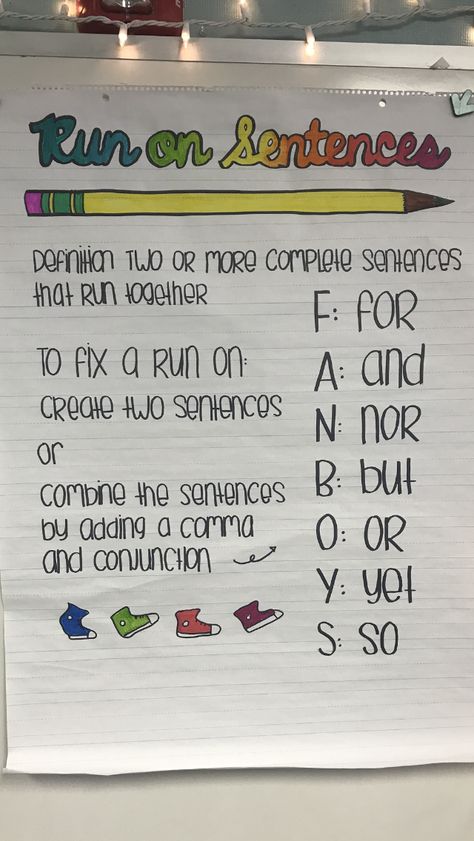 Run on Sentences
Definition Two or more complete sentences
that run together
To fix a run on:
create two sentences
or
combine the sentences
by adding a comma
and conjunction
F: for
A: and
N: nor
B: but
O: or
Y: yet
S: so